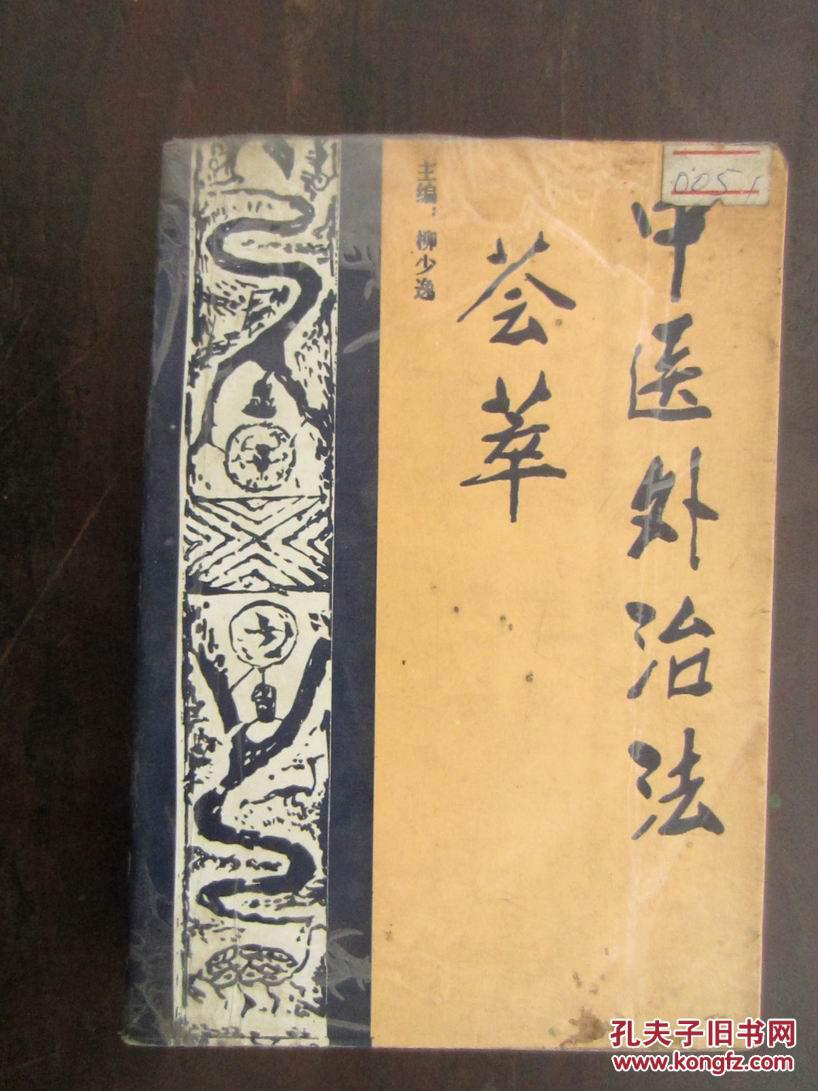 中医外治法
荟萃
主编：柳少逸
0051
孔夫子旧书网
www.kongfz.com